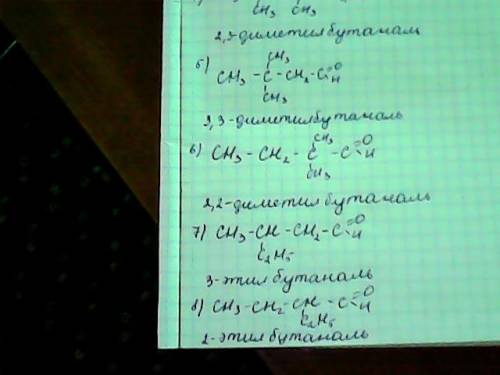 CH₃ CH₃
2,3-диметилбутаналь
CH₃
5) CH₃ - C - CH₂ - C=O H
CH₃
3,3-диметилбутаналь
CH₃
6) CH₃ - CH₂ - C - C=O H
CH₃
2,2-диметилбутаналь
7) CH₃ - CH - CH₂ - C=O H
C₂H₅
3-этилбутаналь
8) CH₃ - CH₂ - CH - C=O H
C₂H₅
2-этилбутаналь